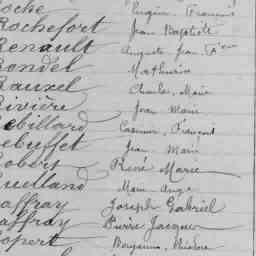 Roche Eugène François
Rochefort Jean Baptiste
Renault Auguste Jean Fçois
Rondel Mathurin
Rauxel Charles Marie
Rivière Jean Marie
Rebillard François
Rebuffet Jean Marie
Robert René Marie
Ruelland Marie Ange
Saffray Joseph Gabriel
Saffray Pierre Jacques
Sopert Benjamin